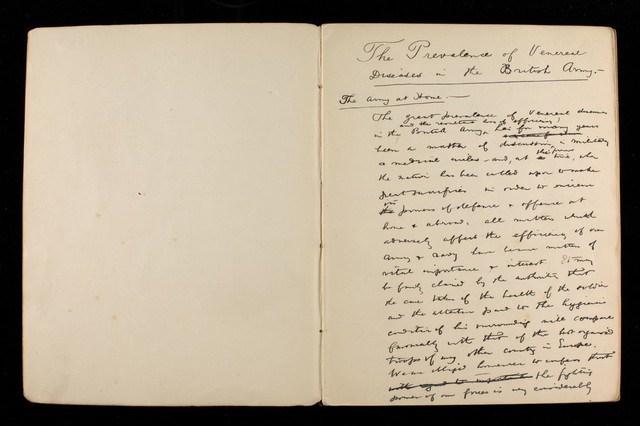 The Prevalence of Venereal
Diseases in the British Army.—
The Army at Home.—
The great prevalence of Venereal diseases
and the resultant loss of efficiency
in the British Army, has for many years
been a matter of discussion in military
& medical circles — and, at this time, when
the nation has been called upon to make
great sacrifices in order to increase
its powers of defence & offence at
home & abroad, all matters which
adversely affect the efficiency of our
Army & Navy have become matters of
vital importance & interest. It may
be fairly claimed by the authorities that
the care taken of the health of the soldier
and the attention paid to the hygienic
condition of his surroundings will compare
favorably with that of the best organised
troops of any other country in Europe.
We are obliged however to confess that
the fighting
power of our forces is very considerably